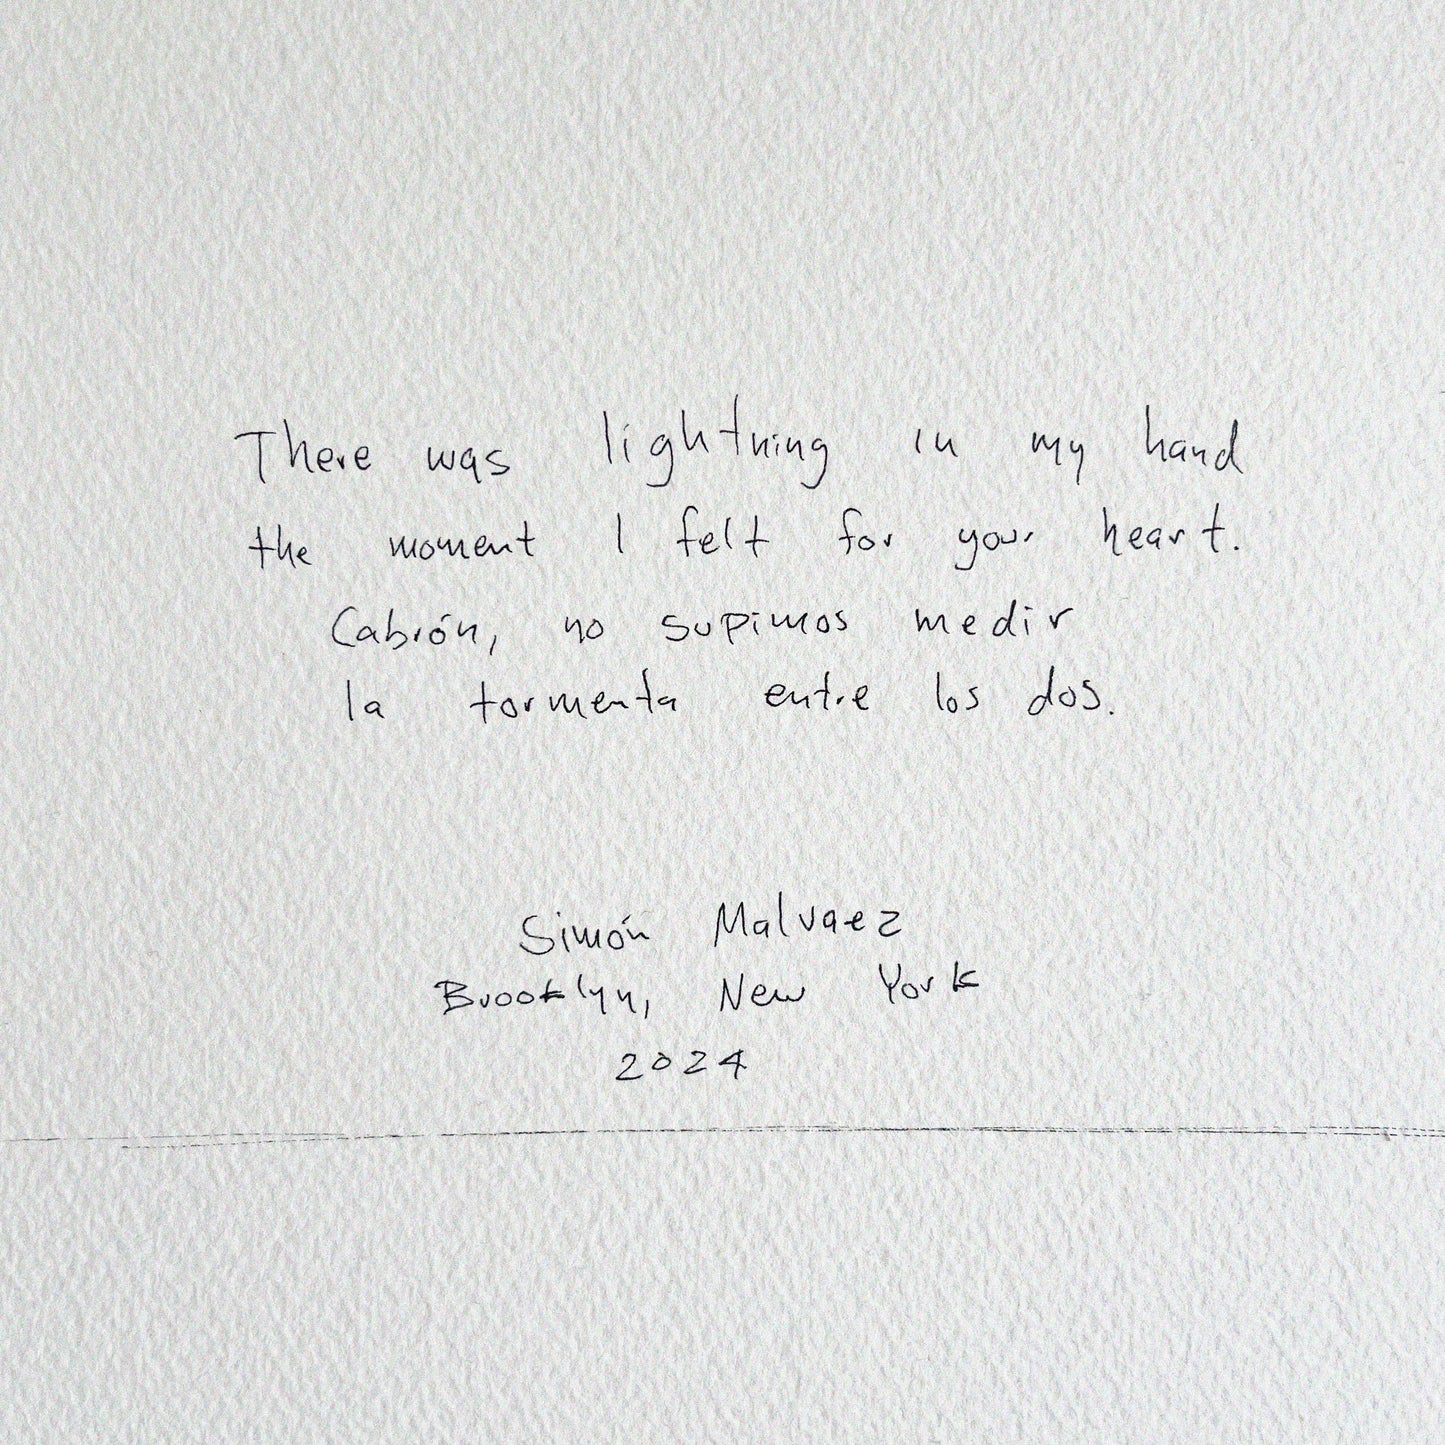 There was lightning in my hand
the moment I felt for your heart.
Cabrón, no supimos medir
la tormenta entre los dos.
Simón Malvaez
Brooklyn, New York
2024